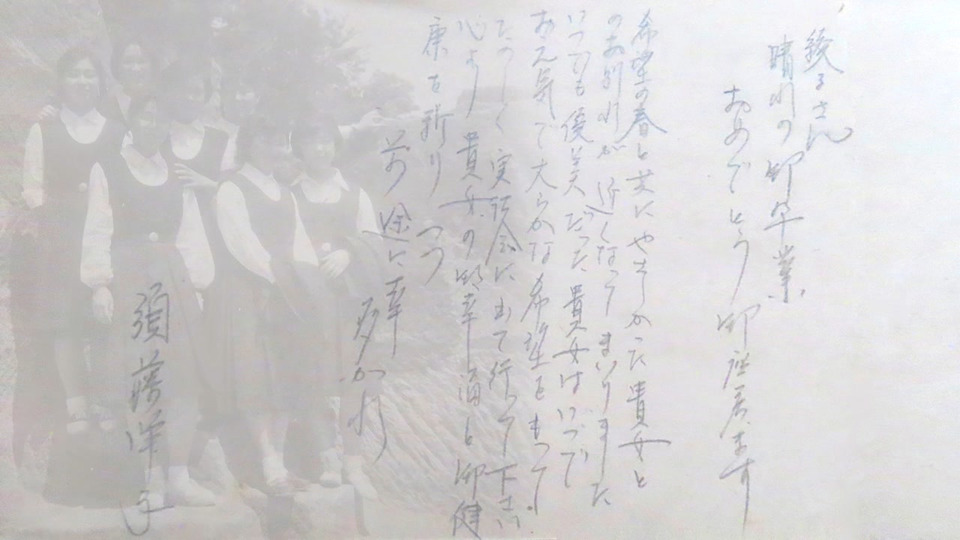 綾子さん
晴れの御卒業
おめでとう御座居ます
希望の春と共にやさしかった貴女と
のお別れが近くなってまいりました
いつでも優美だった貴女はいつで
お元気で大らかな希望をもって
たのしく実社会に出て行って下さい
心より貴女の御幸福と御健
康を祈りつつ
前途に幸
多かれ
須藤洋子